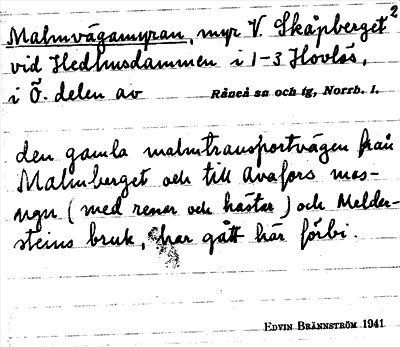 Malmvägamyran, myr V. Skåpberget 2
vid Hedhusdammen i 1-3 Hovlös,
i Ö. delen av Råneå sn och tg, Norrb. l.
den gamla malmtransportvägen från
Malmberget och till Avafors mas-
ugn (med renar och hästar) och Melder-
steins bruk, har gått här förbi.
EDVIN BRÄNNSTRÖM 1941